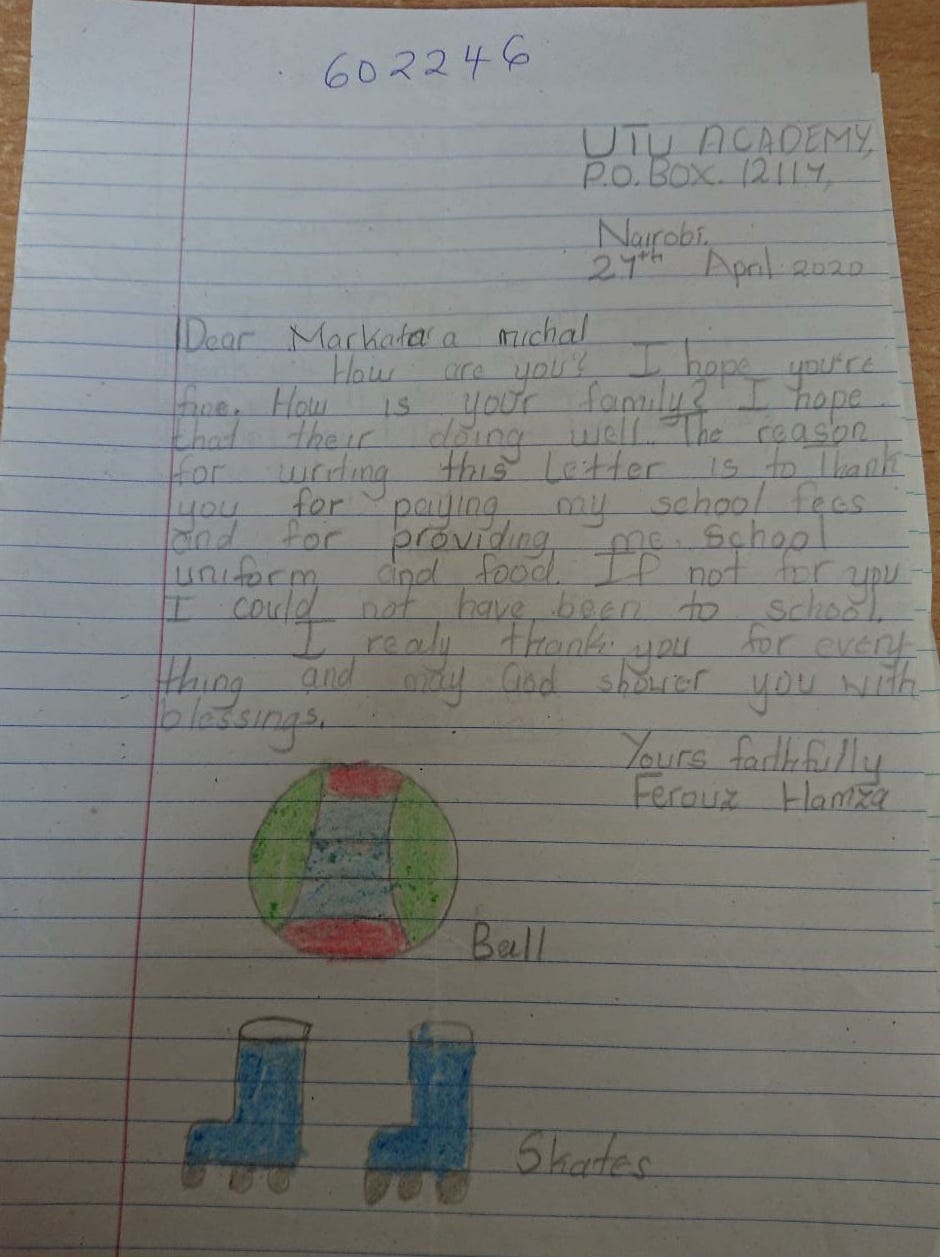 602246
UTU ACADEMY,
P.O. BOX. 12117,
Nairobi.
27th April 2020
Dear Markata a michal
How are you? I hope you're
fine. How is your family? I hope
that their doing well. The reason
for writing this letter is to Thank
you for paying my school fees
and for providing me school
uniform and food. If not for you
I could not have been to school.
I realy thank you for every
thing and may God shower you with
blessings.
Yours faithfully
Ferouz Hamza
Ball
Skates